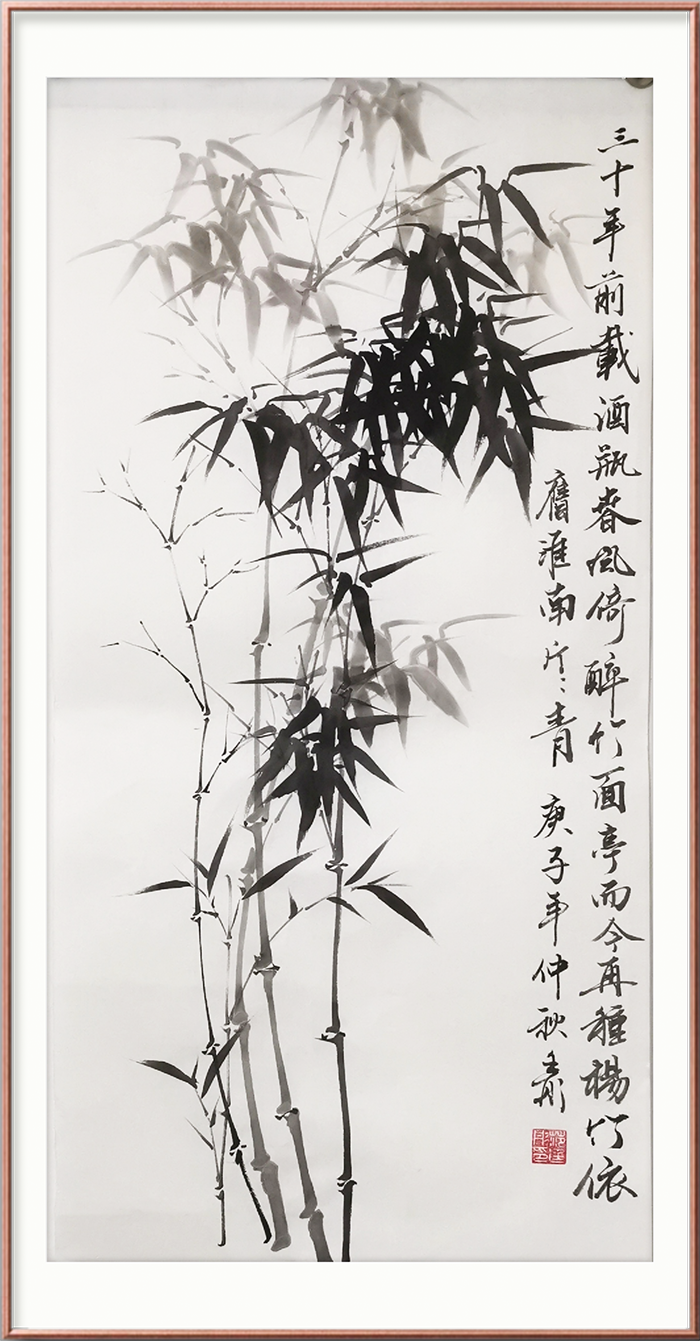 三十年前載酒瓶春风倚醉竹面亭而今再種楊竹依
舊淮南片〻青 庚子年仲秋